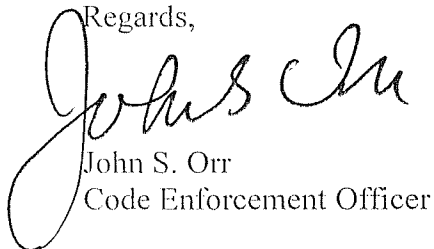 Regards,
John S Orr
John S. Orr
Code Enforcement Officer